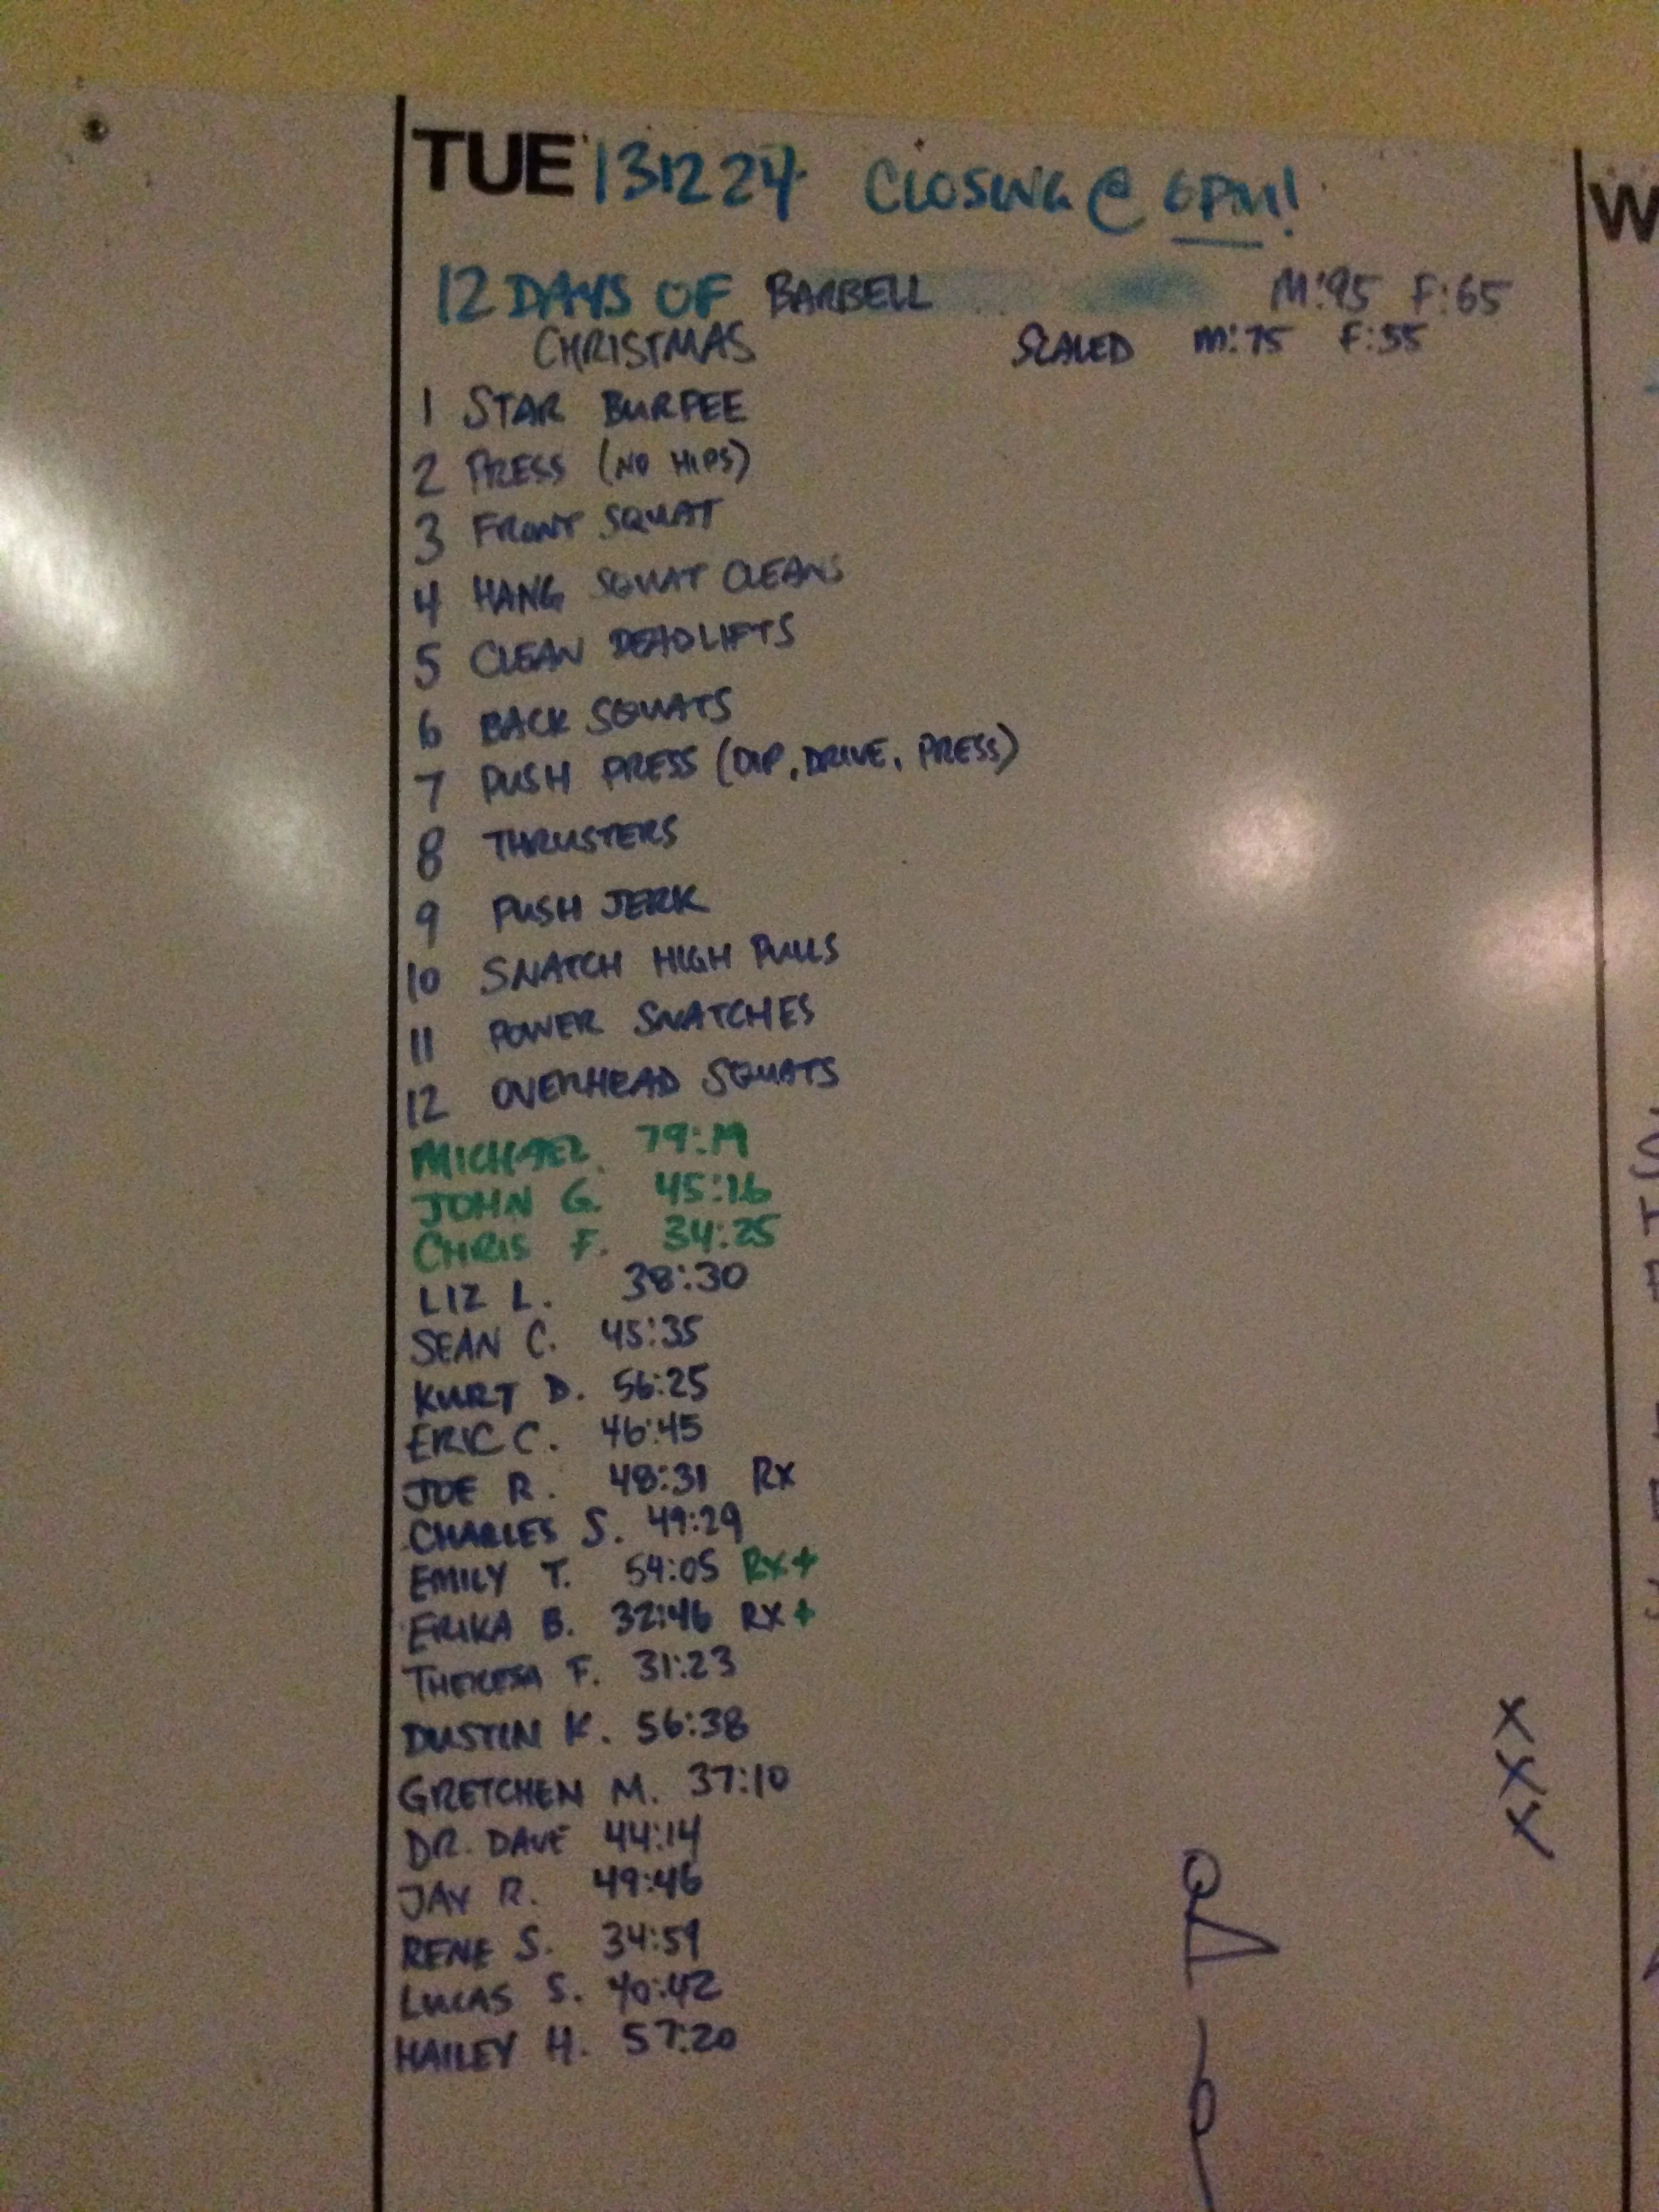 TUE 131224 CLOSING @ 6PM!
12 DAYS OF BARBELL M:95 F:65
CHRISTMAS SCALED M:75 F:55
1 STAR BURPEE
2 PRESS (NO HIPS)
3 FRONT SQUAT
4 HANG SQUAT CLEANS
5 CLEAN DEADLIFTS
6 BACK SQUATS
7 PUSH PRESS (DIP, DRIVE, PRESS)
8 THRUSTERS
9 PUSH JERK
10 SNATCH HIGH PULLS
11 POWER SNATCHES
12 OVERHEAD SQUATS
MICHAEL
JOHN G. 45:16
CHRIS F. 34:25
LIZ L. 38:30
SEAN C. 45:35
KURT D. 56:25
ERIC C. 46:45
JOE R. 48:31 RX
CHARLES S. 49:29
EMILY T. 54:05 RX+
ERIKA B. 32:46 RX+
THERESA F. 31:23
DUSTIN K. 56:38
GRETCHEN M. 37:10
DR. DAVE 44:14
JAY R. 49:46
RENE S. 34:59
LUCAS S. 40:42
HAILEY H. 57:20
W
X
X
X